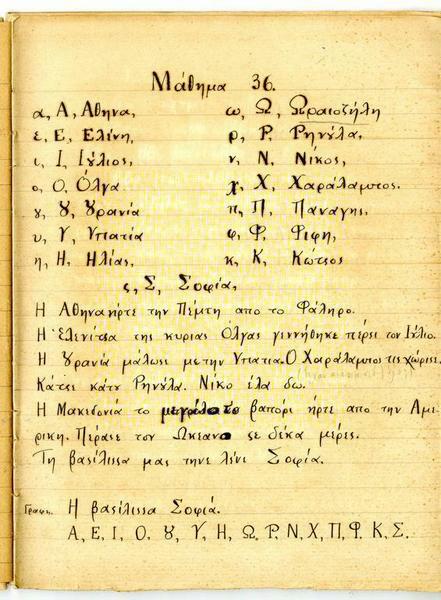 Μάθημα 36.
α, Α, Αθηνα, ω, Ω, Ωραιοζήλη
ε, Ε, Ελένη, ρ, Ρ, Ρηνύλα,
ι, Ι, Ιύλιος, ν, Ν, Νίκος,
ο, Ο, Όλγα χ, Χ, Χαράλαμπος.
ȣ, Ȣ, Ȣρανία π, Π, Παναγης,
υ, Υ, Υπατία φ, Φ, Φιφη,
η, Η, Ηλίας, κ, Κ, Κώτσος
ς, Σ, Σοφία,
Η Αθηνα ήρτε την Πέμτη απο το Φάληρο.
Η Ελενίτσα της κυρίας Όλγας γεννήθηκε πέρσι τον Ιύλιο.
Η Ȣρανία μάλωσε με την Υπατια. Ο Χαράλαμπος τις χώρισε.
Κάτσε κάτυ Ρηνύλα. Νίκο έλα δω.
Η Μακεδονία το μεγάλο το βαπόρι ήρτε απο την Αμε-
ρικη. Πέρασε τον Ωκεανο σε δέκα μέρες.
Τη βασίλισσα μας τηνε λένε Σοφία.
Γραφη. Η βασίλισσα Σοφιά.
Α, Ε, Ι, Ο, Ȣ, Υ, Η, Ω, Ρ, Ν, Χ, Π, Φ, Κ, Σ.